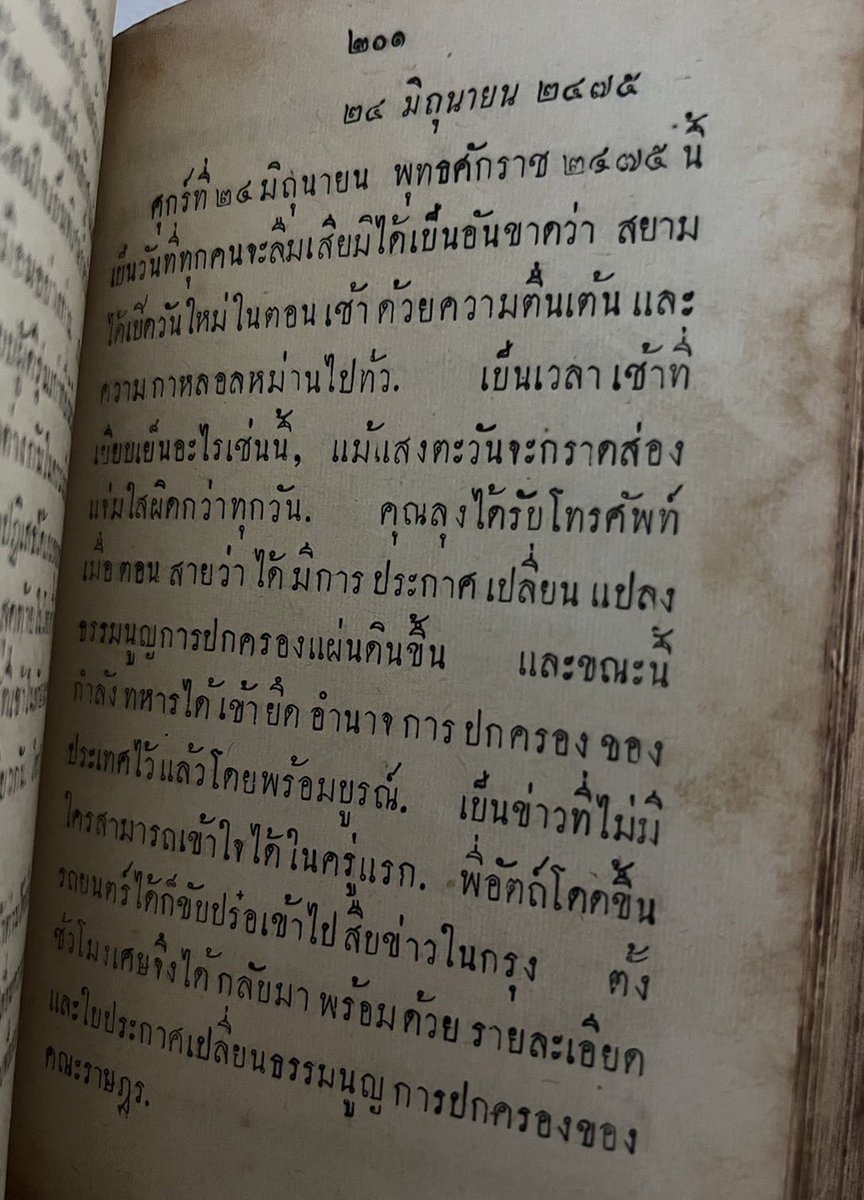 ๒๐๑
๒๔ มิถุนายน ๒๔๗๕
ศุกร์ที่ ๒๔ มิถุนายน พุทธศักราช ๒๔๗๕ นี้
เป็นวันที่ทุกคนจะลืมเสียมิได้เป็นอันขาดว่า สยาม
ได้เปิดวันใหม่ในตอนเช้า ด้วยความตื่นเต้น และ
ความกาหลอลหม่านไปทั่ว. เป็นเวลาเช้าที่
เยียบเย็นอะไรเช่นนี้, แม้แสงตะวันจะกราดส่อง
แจ่มใสผิดกว่าทุกวัน. คุณลุงได้รับโทรศัพท์
เมื่อตอนสายว่า ได้มีการประกาศเปลี่ยนแปลง
ธรรมนูญการปกครองแผ่นดินขึ้น และขณะนี้
กำลังทหารได้เข้ายึดอำนาจการปกครองของ
ประเทศไว้แล้วโดยพร้อมบูรณ์. เป็นข่าวที่ไม่มี
ใครสามารถเข้าใจได้ในครู่แรก. พี่อัตถ์โดดขึ้น
รถยนตร์ได้ก็ขับปร๋อเข้าไปสืบข่าวในกรุง ตั้ง
ชั่วโมงเศษจึงได้กลับมา พร้อมด้วยรายละเอียด
และใบประกาศเปลี่ยนธรรมนูญการปกครองของ
คณะราษฎร.